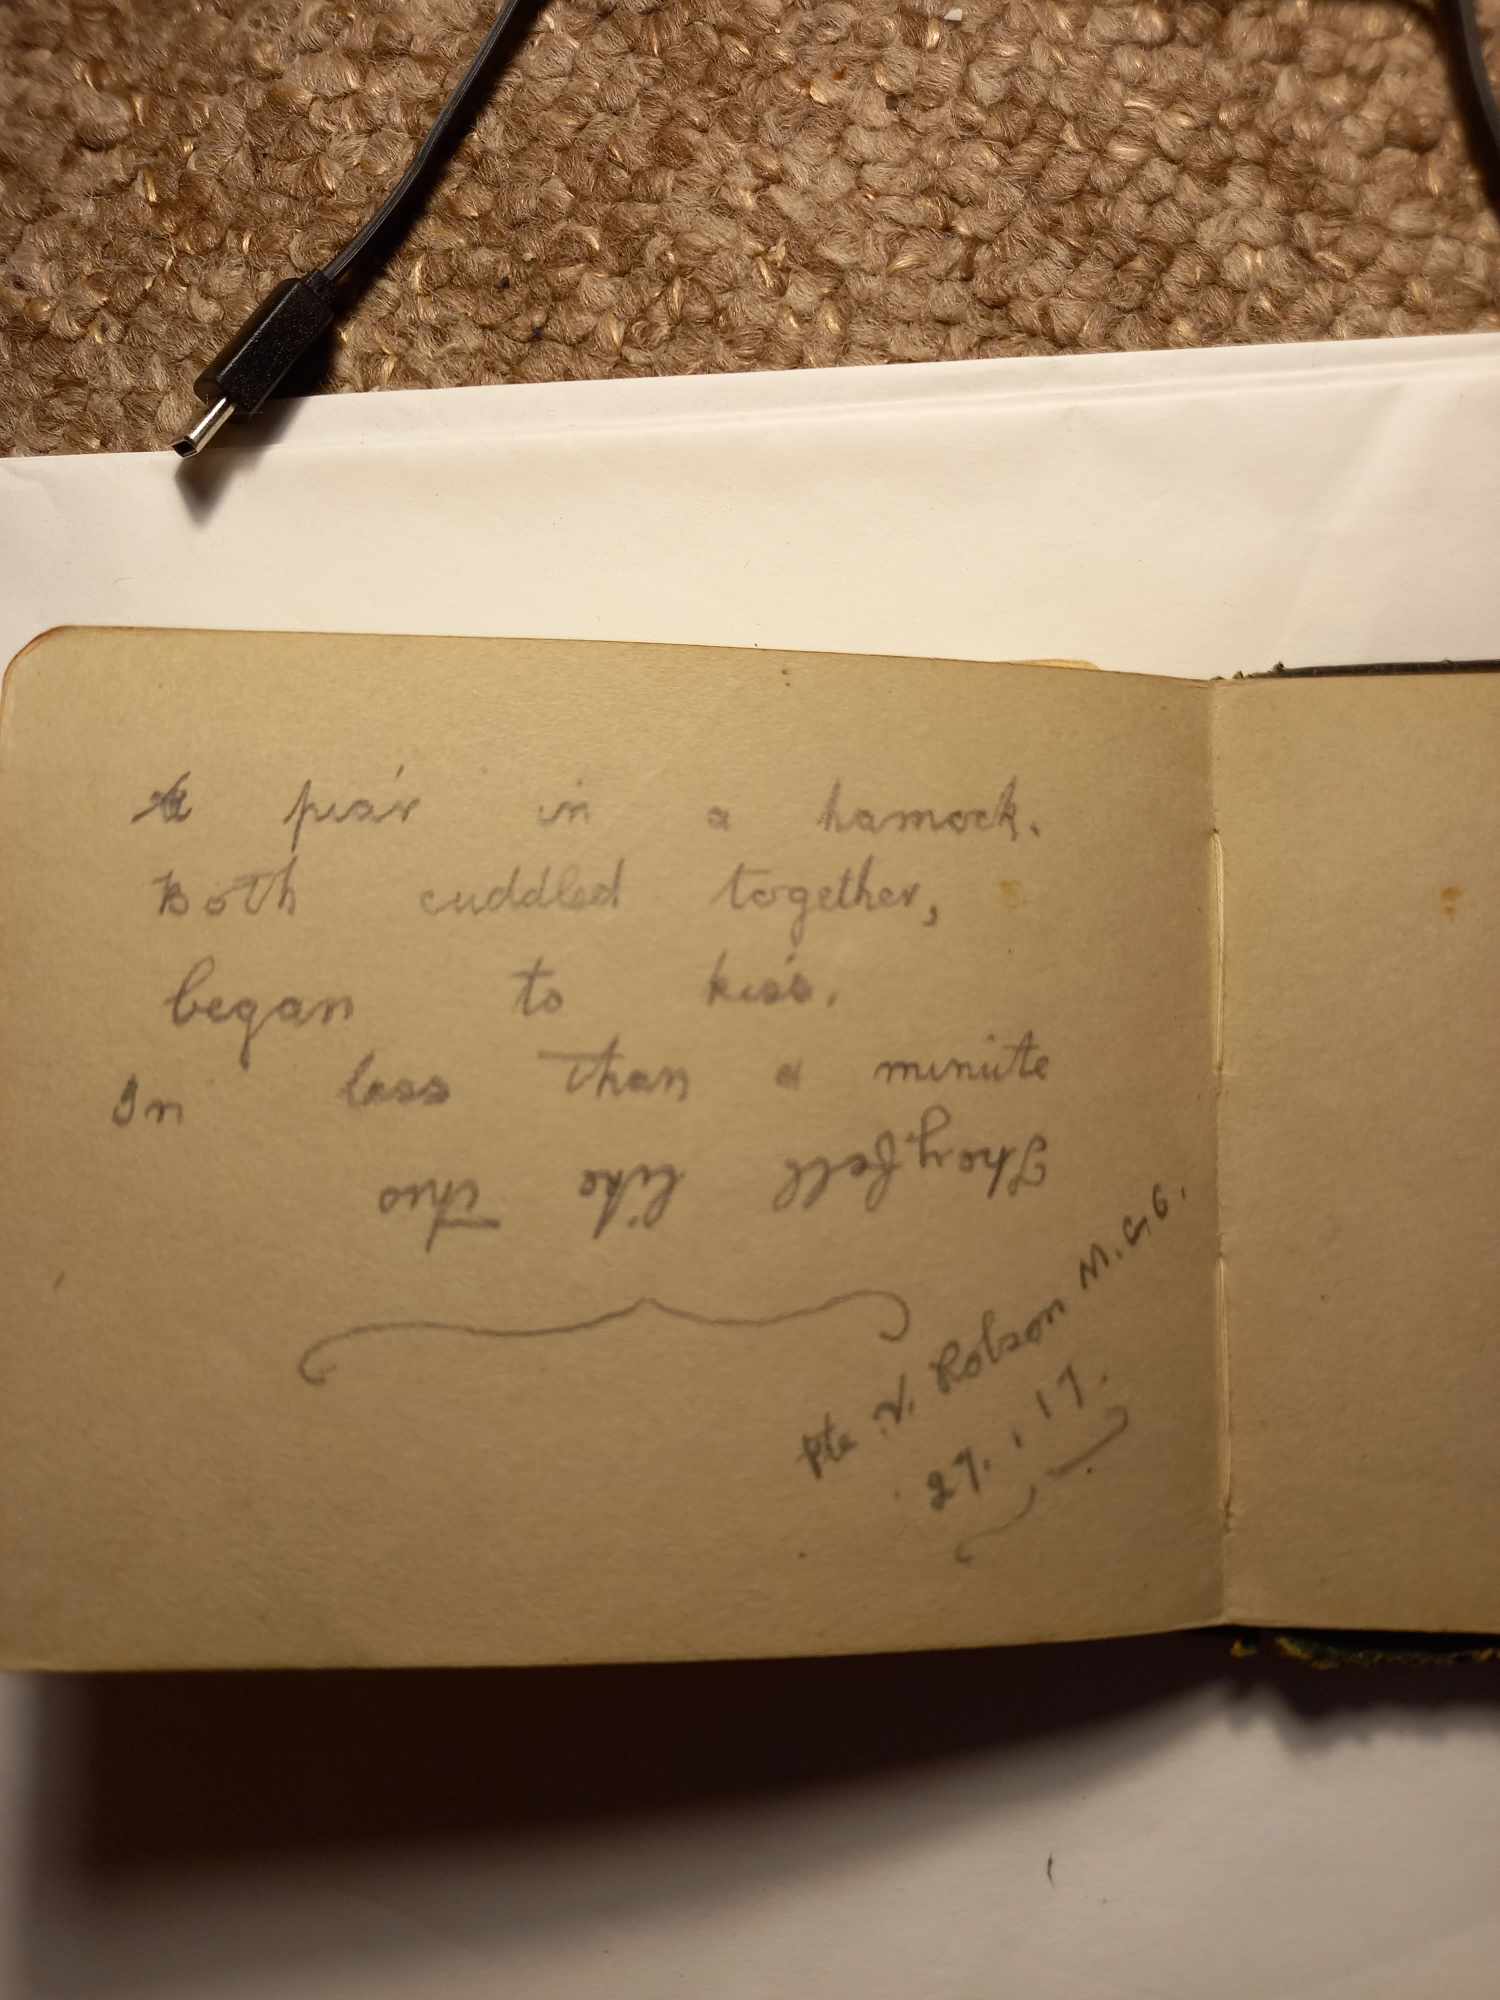 A peair in a hamock.
Both cuddled together,
began to kiss.
In less than a minute
They fell like this
Pte N. Robson M.G.C.
27.1.17.